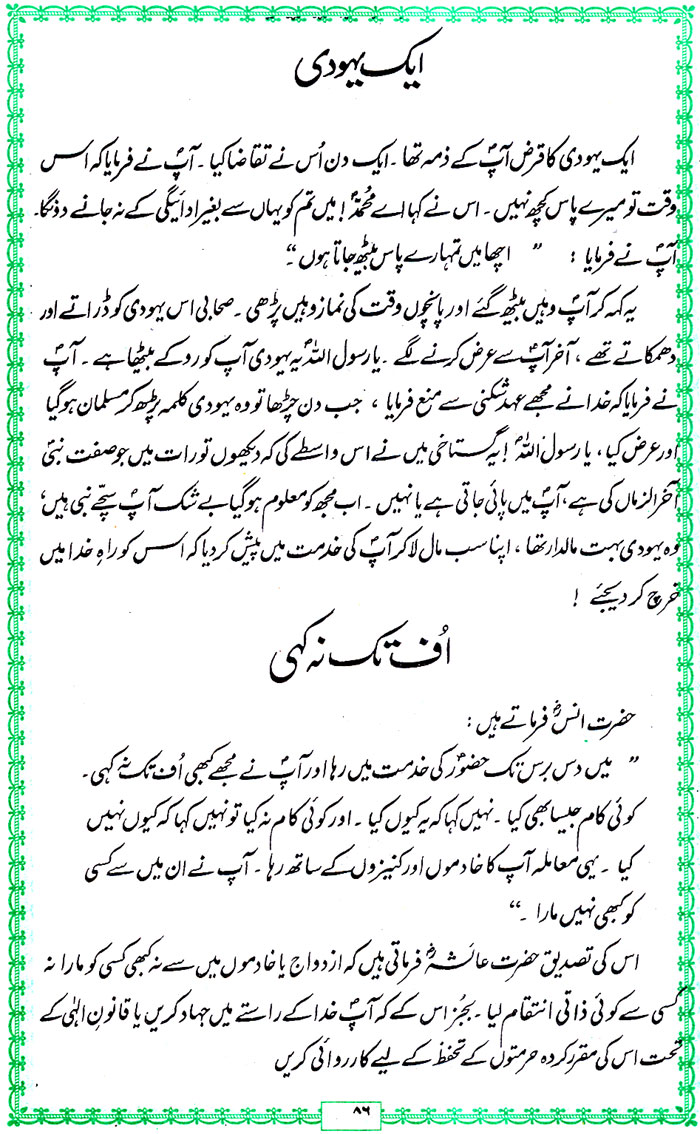 ایک یہودی
ایک یہودی کا قرض آپؐ کے ذمہ تھا ۔ ایک دن اُس نے تقاضا کیا ۔ آپؐ نے فرمایا کہ اس
وقت تو میرے پاس کچھ نہیں ۔ اس نے کہا اے محمدؐ ! میں تم کو یہاں سے بغیر ادائیگی کے نہ جانے دونگا۔
آپؐ نے فرمایا : ” اچھا میں تمہارے پاس بیٹھ جاتا ہوں “۔
یہ کہہ کر آپؐ وہیں بیٹھ گئے اور پانچوں وقت کی نماز وہیں پڑھی ۔ صحابی اس یہودی کو ڈراتے اور
دھمکاتے تھے ، آخر آپؐ سے عرض کرنے لگے ۔ یا رسول اللہؐ یہ یہودی آپ کو روکے بیٹھا ہے ۔ آپؐ
نے فرمایا کہ خدا نے مجھے عہد شکنی سے منع فرمایا ، جب دن چڑھا تو وہ یہودی کلمہ پڑھ کر مسلمان ہو گیا
اور عرض کیا ، یا رسول اللہؐ ! یہ گستاخی میں نے اس واسطے کی کہ دیکھوں تورات میں جو صفت نبیؐ
آخر الزماں کی ہے ، آپؐ میں پائی جاتی ہے یا نہیں ۔ اب مجھ کو معلوم ہو گیا بے شک آپؐ سچے نبی ہیں،
وہ یہودی بہت مالدار تھا ، اپنا سب مال لا کر آپؐ کی خدمت میں پیش کر دیا کہ اس کو راہِ خدا میں
خرچ کر دیجئے !
اُف تک نہ کہی
حضرت انسؓ فرماتے ہیں :
” میں دس برس تک حضورؐ کی خدمت میں رہا اور آپؐ نے مجھے کبھی اُف تک نہ کہی ۔
کوئی کام جیسا بھی کیا ۔ نہیں کہا کہ یہ کیوں کیا ۔ اور کوئی کام نہ کیا تو نہیں کہا کہ کیوں نہیں
کیا ۔ یہی معاملہ آپ کا خادموں اور کنیزوں کے ساتھ رہا ۔ آپؐ نے ان میں سے کسی
کو کبھی نہیں مارا ۔“
اس کی تصدیق حضرت عائشہؓ فرماتی ہیں کہ ازدواج یا خادموں میں سے نہ کبھی کسی کو مارا نہ
کسی سے کوئی ذاتی انتقام لیا ۔ بجُز اس کے کہ آپؐ خدا کے راستے میں جہاد کریں یا قانونِ الٰہی کے
تحت اس کی مقرر کردہ حرمتوں کے تحفظ کے لیے کارروائی کریں
۸۶